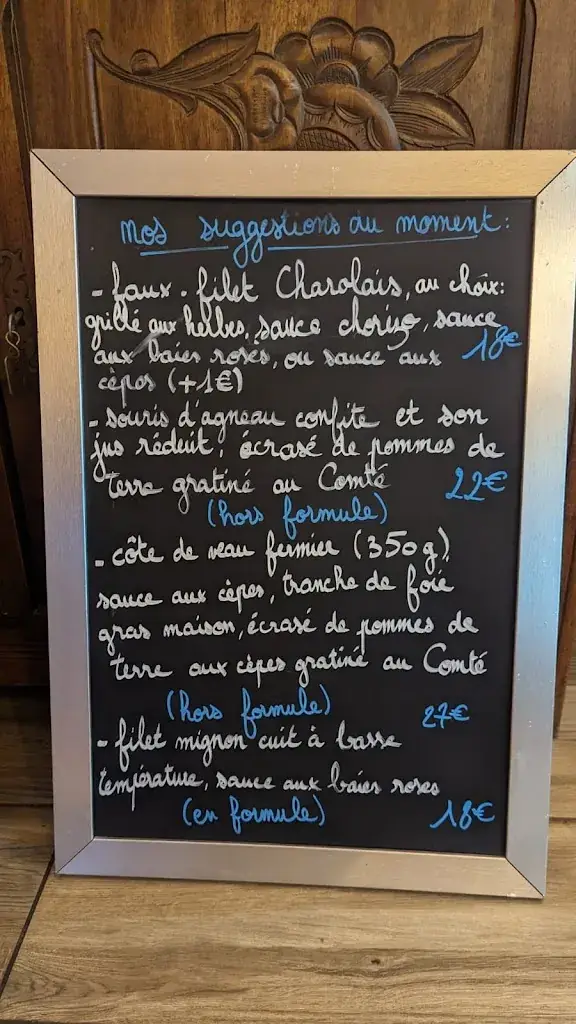 Nos suggestions du moment:
- faux-filet Charolais, au choix:
grillé aux herbes, sauce chorizo, sauce
aux baies roses, ou sauce aux 18€
cèpes (+1€)
- souris d'agneau confite et son
jus réduit, écrasé de pommes de
terre gratiné au Comté 22€
(hors formule)
- côte de veau fermier (350g),
sauce aux cèpes, tranche de foie
gras maison, écrasé de pommes de
terre aux cèpes gratiné au Comté
(hors formule) 27€
- filet mignon cuit à basse
température, sauce aux baies roses
(en formule) 18€